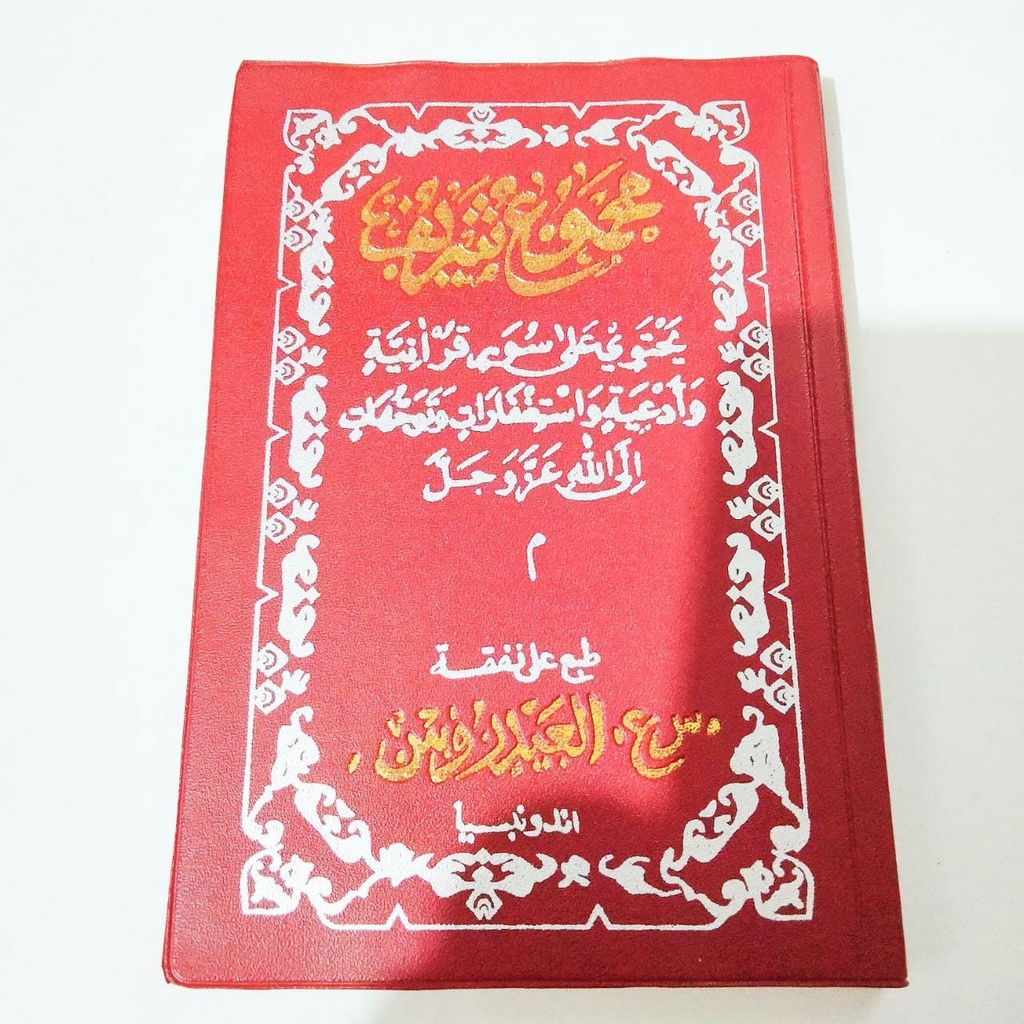 مجموع شريف
يَحْتَوِي عَلَى سُوَرٍ قُرْآنِيَّةٍ
وَأَدْعِيَةٍ وَاسْتِغْفَارَاتٍ وَتَوَجُّهَاتٍ
إِلَى اللهِ عَزَّ وَجَلَّ
م
طبع على نفقة
س.ع. العَيْدَرُوس
اندونيسيا